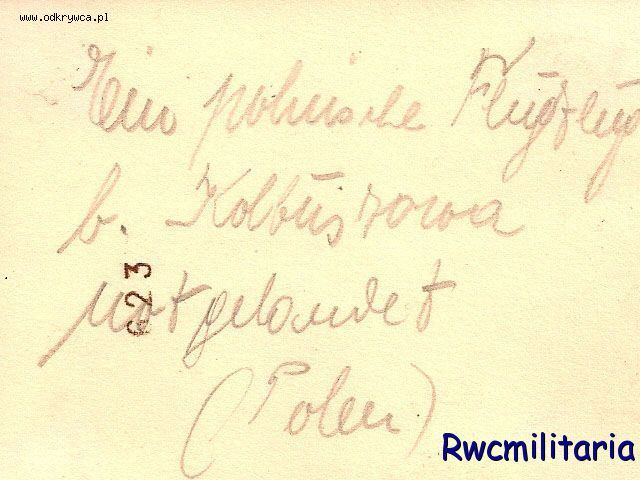 www.odkrywca.pl
Ein polnische Flugzeug
b. Kolbuszowa
notgelandet
623
(Polen)
Rwcmilitaria